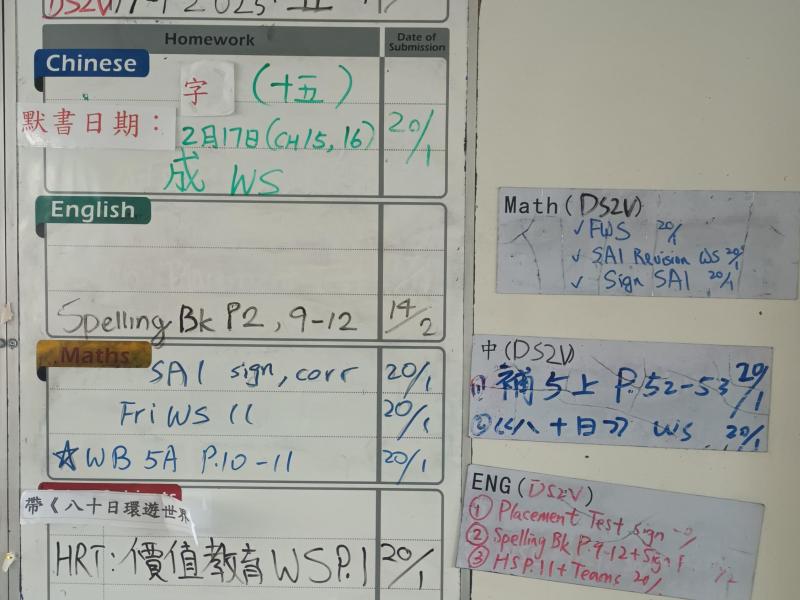 Homework
Date of Submission
Chinese
字 (十五)
默書日期：
2月17日(CH15, 16)
20/1
成 WS
English
Spelling Bk P2, 9-12
14/2
Maths
SA1 sign, corr
20/1
Fri WS 11
20/1
☆WB 5A P.10-11
20/1
帶《八十日環遊世界
HRT: 價值教育 WS P.1
20/1
Math (DS2V)
✓ FWS 20/1
✓ SA1 Revision WS 20/1
✓ Sign SA1 20/1
中 (DS2V)
① 補 5上 P.52-53 20/1
② 《八十日》 WS 20/1
ENG (DS2V)
① Placement Test sign
② Spelling Bk P.9-12 + Sign
③ HS P.11 + Teams 20/1